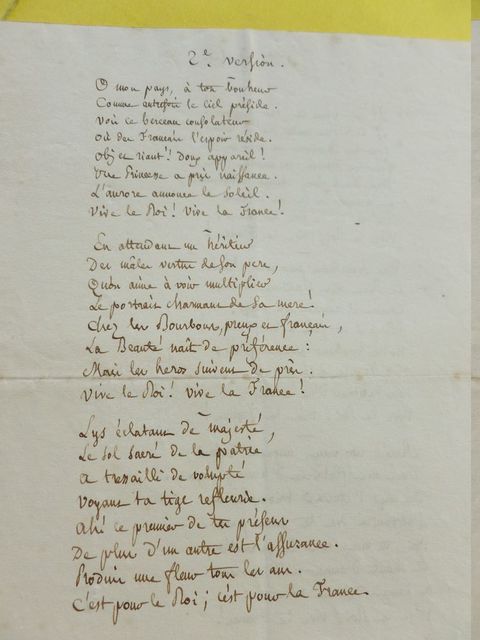 2e version.
O mon pays, à ton bonheur
Comme autrefois le ciel préside.
Vois ce berceau consolateur
Où des Français l'espoir réside.
Objet riant! Doux appareil!
Une Princesse a pris naissance.
L'aurore annonce le Soleil.
Vive le Roi! Vive la France!
En attendant un héritier
Des mâles vertus de son pere,
Qu'on aime à voir multiplier
Le portrait charmant de Sa mere!
Chez les Bourbons, preux et français,
La Beauté naît de préférence:
Mais les heros suivent de près.
Vive le Roi! vive la France!
Lys éclatant de majesté,
Le sol sacré de la patrie
a tressailli de volupté
Voyant ta tige refleurie.
Ah! ce premier de tes présens
De plus d'un autre est l'assurance.
Produis une fleur tous les ans.
C'est pour le Roi; c'est pour la France.